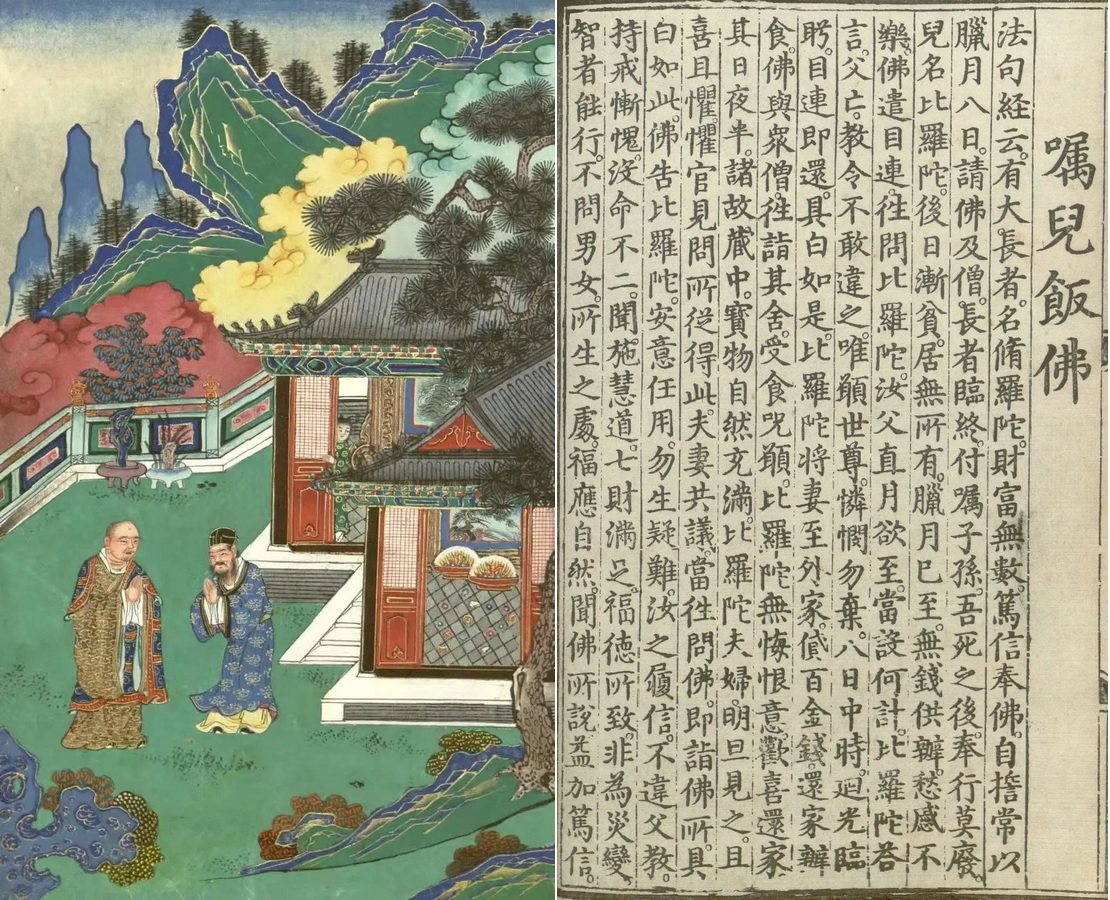 嘱兒飯佛
法句経云。有大長者。名脩羅陀。財富無數。篤信奉佛。自擔常以
臘月八日。請佛及僧。長者臨終。付嘱子孫。吾死之後。奉行莫廢。
兒名比羅陀。後日漸貧。居無所有。臘月已至。無錢供辦。愁慼不
樂。佛遣目連。徃問比羅陀。汝父直月欲至。當設何計。比羅陀荅
言。父亡。教令不敢違之。唯願世尊。憐憫勿棄。八日中時。廻光臨
眄。目連即還。具白如是。比羅陀将妻至外家。貸百金錢。還家辦
食。佛與眾僧徃詣其舍。受食呪願。比羅陀無悔恨意。歡喜還家
其日夜半。諸故藏中。寶物自然充滿。比羅陀夫婦。明旦見之。且
喜且懼。懼官見問。所從得此。夫妻共議。當徃問佛。即詣佛所。具
白如此。佛告比羅陀。安意任用。勿生疑難。汝之履信。不違父教。
持戒慚愧。沒命不二。聞施慧道。七財滿足。福德所致。非為災變
智者能行。不問男女。所生之處。福應自然。聞佛所說。益加篤信。